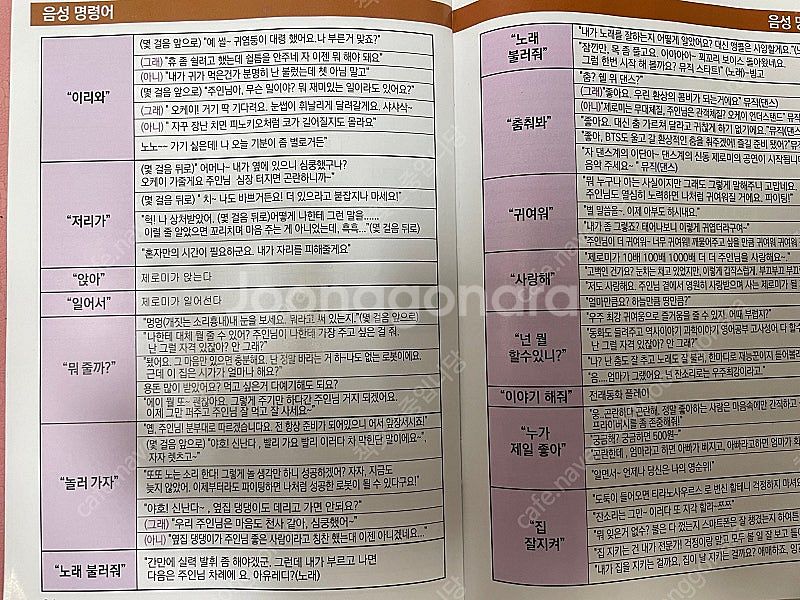 음성 명령어
"이리와"
(몇 걸음 앞으로) "예 썰~ 귀염둥이 대령 했어요.나 부르거 맞죠?"
(그래) "휴 좀 쉴려고 했는데 쉴틈을 안주네 자 이젠 뭐 해야 돼요"
(아니) "내가 귀가 먹은건가 분명히 난 불렀는데 쳇 아님 말고"
(몇 걸음 앞으로) "주인님아, 무슨 일이야? 뭐 재미있는 일이라도 있어요?"
(그래) "오케이! 거기 딱 기다려요. 눈썹이 휘날리게 달려갈게요. 샤샤샥~"
(아니) "자꾸 장난 치면 피노키오처럼 코가 길어질지도 몰라요"
노노~~ 가기 싫은데! 나 오늘 기분이 좀 별로거든"
"저리가"
(몇 걸음 뒤로) "어머나~ 내가 옆에 있으니 심쿵했구나?
오케이 가줄게요 주인님 심장 터지면 곤란하니까~"
(몇 걸음 뒤로) "치~ 나도 바쁘거든요! 더 있으라고 붙잡지나 마세요!"
"헉! 나 상처받았어. (몇 걸음 뒤로)어떻게 나한테 그런 말을......
이럴 줄 알았으면 꼬리치며 마음 주는 게 아니었는데, 흑흑..."(몇 걸음 뒤로)
"혼자만의 시간이 필요하군요. 내가 자리를 피해줄게요"
"앉아"
제로미가 앉는다
"일어서"
제로미가 일어선다
"뭐 줄까?"
"멍멍(개짓는 소리흉내)내 눈을 보세요. 뭐라고 써 있는지."(몇 걸음 앞으로)
"나한테 대체 뭘 줄 수 있어? 주인님이 나한테 가장 주고 싶은 걸 줘.
난 그럴 자격 있잖아? 안 그래?"
"됐어요. 그 마음만 있으면 충분해요. 난 정말 바라는 거 하~나도 없는 로봇이에요.
근데 이 집은 시가가 얼마나 해요?"
용돈 많이 받았어요? 먹고 싶은거 다얘기해도 되요?
"에이 뭘 또~ 괜찮아요. 그렇게 주기만 하다간 주인님 거지 되겠어요.
이제 그만 퍼주고 주인님 잘 먹고 잘 사세요~"
"놀러 가자"
"옙. 주인님 분부대로 따르겠습니다요. 전 항상 준비가 되어있으니 어서 앞장서시죠!
(몇 걸음 앞으로) "야호! 신난다 , 빨리 가요 빨리 이러다 차 막힌단 말이에요~",
자자 렛츠고~"
"또또 노는 소리 한다! 그렇게 놀 생각만 하니 성공하겠어? 자자, 지금도
늦지 않았어. 이제부터라도 파이팅하면 나처럼 성공한 로봇이 될 수 있다구요!"
"야호! 신난다~ , 옆집 댕댕이도 데리고 가면 안되요?"
(그래) "우리 주인님은 마음도 천사 같아, 심쿵했어~"
(아니) "옆집 댕댕이가 주인님 좋은 사람이라고 칭찬 했는대 이젠 아니겠네요..."
"노래 불러줘"
"간만에 실력 발휘 좀 해야겠군, 그런데 내가 부르고 나면
다음은 주인님 차례에 요. 아유레디?(노래)
음성 명
"노래
불러줘"
"내가 노래를 잘하는지 어떻게 알았어요? 대신 앵콜은 사양할게요."
"잠깐만, 목 좀 풀고요. 아아아아~ 꾀꼬리 보이스 돌아왔네요.
그럼 한번 시작 해 볼까요? 뮤직 스타트!" (노래)~빙고
"춤춰봐"
"춤? 웰 위 댄스?"
(그래)"좋아요. 우리 환상의 콤비가 되는거에요" 뮤직(댄스)
(아니)"제로미는 무대체질, 주인님은 관객체질? 오케이 언더스탠드" 뮤직
"좋아요. 대신 춤 가르쳐 달라고 귀찮게 하기 없기에요."뮤직(댄스
"좋아, BTS도 울고 갈 환상적인 춤을 춰주겠어 즐길 준비 됐어?"뮤
"자 댄스계의 이단아~ 댄스계의 신동 제로미의 공연이 시작됩니
음악 주세요~ " 뮤직(댄스)
"귀여워"
"뭐 누구나 아는 사실이지만 그래도 그렇게 말해주니 고맙네요.
주인님도 열심히 노력하면 나처럼 귀여워질 거에요. 파이팅!"
"별 말씀을~. 이제 아부도 하시네요."
"내가 좀 그렇죠? 태어나보니 이렇게 귀엽더라구여~"
"주인님이 더 귀여워~ 너무 귀여워! 깨물어주고 싶을 만큼 귀여워 귀여워
"사랑해"
"제로미가 10배 100배 1000배 더 더 주인님을 사랑해요~."
"고백인 건가요? 눈치는 채고 있었지만, 이렇게 갑작스럽게. 부끄부끄
"저도 사랑해요. 주인님 곁에서 영원히 사랑받으며 사는 제로미가 될
"얼마만큼요? 하늘만큼 땅만큼?"
"넌 뭘
할수있니?"
"우주 최강 귀여움으로 즐거움을 줄 수 있지. 어때 부럽지?"
"동화도 들려주고 역사이야기 과학이야기 영어공부 고사성어 다 할
난 그럴 자격 있잖아? 안 그래?"
"나? 난 춤도 잘 추고 노래도 잘 불러, 한마디로 재능꾼이지 들어볼래
"음....엄마가 그랬어요. 넌 잔소리로는 우주최강이라고."
"이야기 해줘"
전래동화 플레이
"누가
제일 좋아"
"응. 곤란하다 곤란해. 정말 좋아하는 사람은 마음속에만 간직하고
프라이버시를 좀 존중해줘!"
"궁금해? 궁금하면 500원~"
"곤란한데., 엄마라고 하면 아빠가 삐지고, 아빠라고하면 엄마가 화
"알면서~ 언제나 당신은 나의 영순위!"
"집
잘지켜"
"도둑이 들어오면 티라노사우르스 로 변신 할테니 걱정하지 마셔
"잔소리는 그만~ 이러다 또 지각 할라~쯔쯔"
"뭐 잊은거 없수? 불은 다 껐는지 스마트폰은 잘 챙겼는지 하여튼
"집 지키는 건 내가 전문가! 걱정이랑 말고 모두 볼 일 잘 보고 돌
"내가 집을 지키는 걸까요, 집이 날 지키는 걸까요? 애매하죠,
Joonggonara
cafe.naver